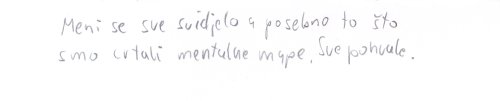 Meni se sve svidjelo a posebno to što
smo crtali mentalne mape. Sve pohvale.